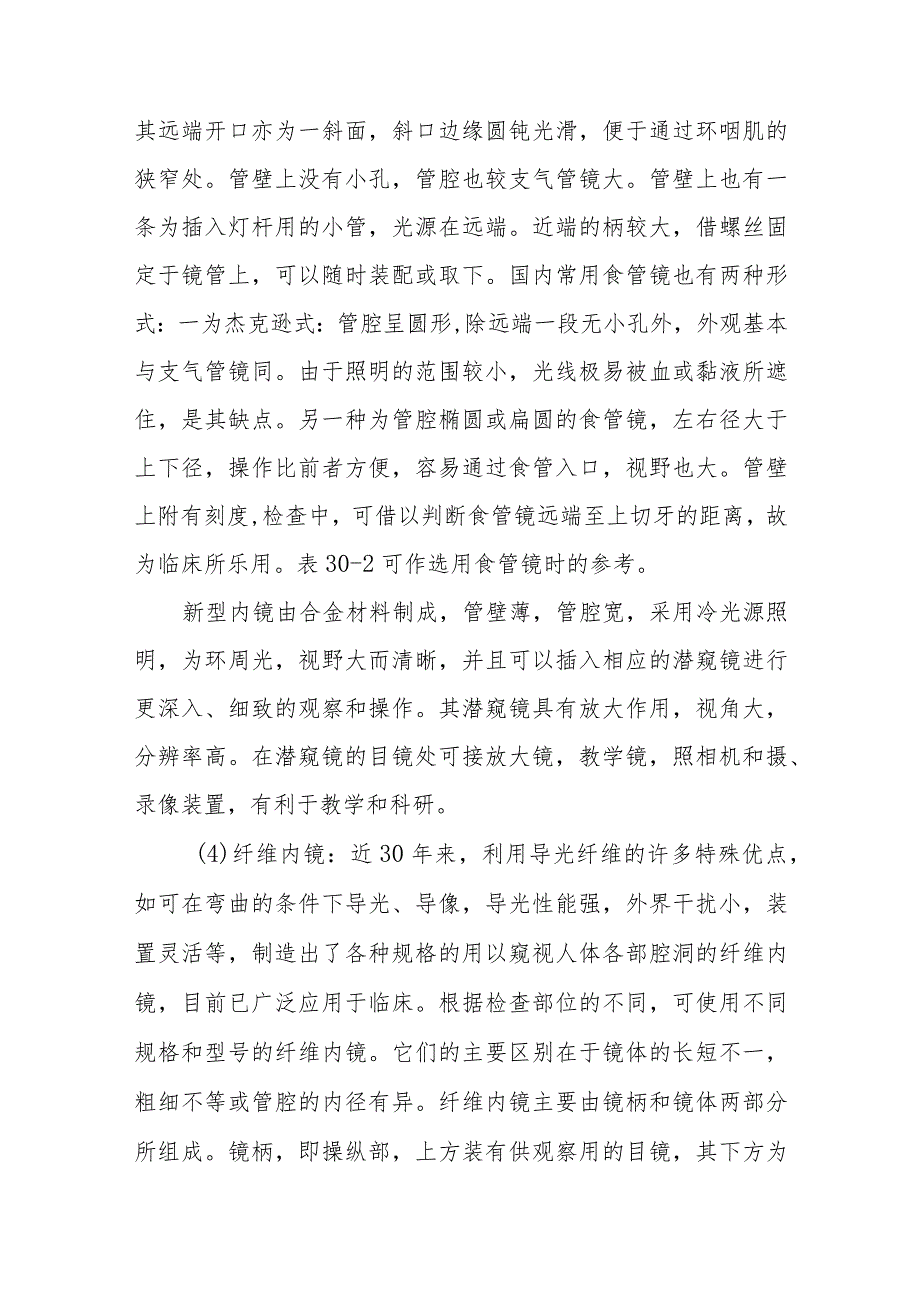 其远端开口亦为一斜面，斜口边缘圆钝光滑，便于通过环咽肌的
狭窄处。管壁上没有小孔，管腔也较支气管镜大。管壁上也有一
条为插入灯杆用的小管，光源在远端。近端的柄较大，借螺丝固
定于镜管上，可以随时装配或取下。国内常用食管镜也有两种形
式：一为杰克逊式：管腔呈圆形,除远端一段无小孔外，外观基本
与支气管镜同。由于照明的范围较小，光线极易被血或黏液所遮
住，是其缺点。另一种为管腔椭圆或扁圆的食管镜，左右径大于
上下径，操作比前者方便，容易通过食管入口，视野也大。管壁
上附有刻度,检查中，可借以判断食管镜远端至上切牙的距离，故
为临床所乐用。表 30-2 可作选用食管镜时的参考。
新型内镜由合金材料制成，管壁薄，管腔宽，采用冷光源照
明，为环周光，视野大而清晰，并且可以插入相应的潜窥镜进行
更深入、细致的观察和操作。其潜窥镜具有放大作用，视角大，
分辨率高。在潜窥镜的目镜处可接放大镜，教学镜，照相机和摄、
录像装置，有利于教学和科研。
(4)纤维内镜：近 30 年来，利用导光纤维的许多特殊优点，
如可在弯曲的条件下导光、导像，导光性能强，外界干扰小，装
置灵活等，制造出了各种规格的用以窥视人体各部腔洞的纤维内
镜，目前已广泛应用于临床。根据检查部位的不同，可使用不同
规格和型号的纤维内镜。它们的主要区别在于镜体的长短不一，
粗细不等或管腔的内径有异。纤维内镜主要由镜柄和镜体两部分
所组成。镜柄，即操纵部，上方装有供观察用的目镜，其下方为